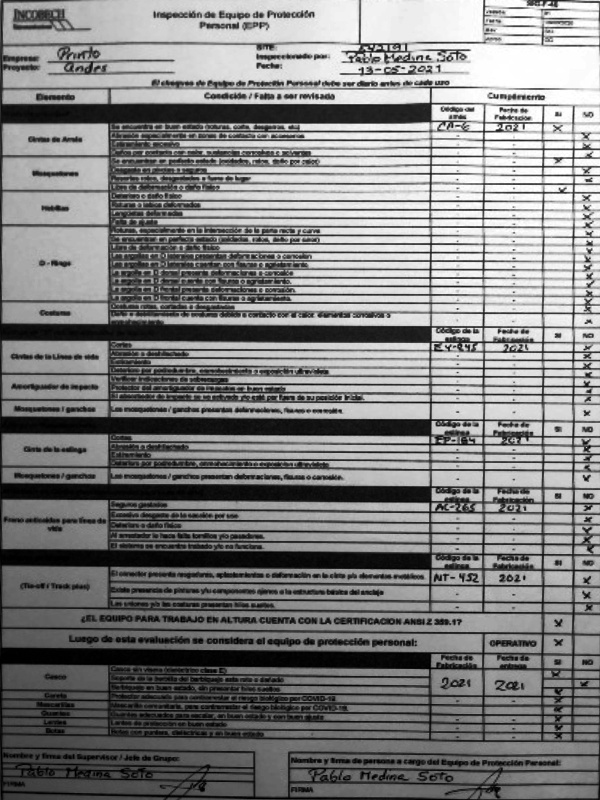 INCOBECH
Inspección de Equipo de Protección
Personal (EPP)
Empresa: Printo
Proyecto: Andes
SITE:
Inspeccionado por: Pablo Medina Soto
Fecha: 13-05-2021
El chequeo de Equipo de Protección Personal debe ser diario antes de cada uso
Elemento Condición / Falta a ser revisada Cumplimiento
Código del arnés Fecha de Fabricación SI NO
Cintas de Arnés
Se encuentra en buen estado (roturas, corte, desgarros, etc) CA-6 2021 X
Abrasión especialmente en zonas de contacto con accesorios
Estiramiento excesivo
Daños por contacto con calor, sustancias corrosivas o solventes
Mosquetones
Se encuentran en perfecto estado (oxidados, rotos, daño por calor)
Desgaste en pivotes o seguros
Resortes rotos, desgastados o fuera de lugar
Libre de deformación o daño físico
Hebillas
Deterioro o daño físico
Lengüetas deformadas
Falta de ajuste
D - Rings
Roturas, especialmente en la intersección de la parte recta y curva
Se encuentran en perfecto estado (oxidados, rotos, daño por calor)
Libre de deformación o daño físico
Las argollas en D laterales presentan deformaciones o corrosión
Las argollas en D laterales cuentan con fisuras o agrietamiento.
La argolla en D dorsal presenta deformaciones o corrosión
La argolla en D dorsal cuenta con fisuras o agrietamiento.
La argolla en D frontal presenta deformaciones o corrosión.
La argolla en D frontal cuenta con fisuras o agrietamiento.
Costuras
Costuras rotas, cortadas o desgastadas
Daño o debilitamiento de costuras debido a contacto con el calor, elementos corrosivos o
Código de la eslinga Fecha de Fabricación SI NO
Cintas de la Línea de vida
Cortes EY-245 2021 X
Abrasión o deshilachado
Estiramiento
Deterioro por podredumbre, enmohecimiento o exposición ultravioleta
Amortiguador de impacto
Verificar indicaciones de sobrecargas
Protector del amortiguador de impactos en buen estado
El absorbedor de impacto se va activado y/o está por fuera de su posición inicial.
Mosquetones / ganchos Los mosquetones / ganchos presentan deformaciones, fisuras o corrosión. X
Código de la eslinga Fecha de Fabricación SI NO
Cinta de la eslinga
Cortes EP-184 2021 X
Abrasión o deshilachado
Estiramiento
Deterioro por podredumbre, enmohecimiento o exposición ultravioleta
Mosquetones / ganchos Los mosquetones / ganchos presentan deformaciones, fisuras o corrosión. X
Código de la eslinga Fecha de Fabricación SI NO
Freno anticaídas para línea de vida
Seguros gastados AC-265 2021 X
Excesivo desgaste de la sección por uso
Deterioro o daño físico
Al arrestador le hace falta tornillos y/o pasadores.
El sistema se encuentra trabado y/o no funciona.
Código de la eslinga Fecha de Fabricación SI NO
(Tie-off / Track plus)
El conector presenta rasgaduras, aplastamientos o deformación en la cinta y/o elementos metálicos. NT-452 2021 X
Existe presencia de pinturas y/o componentes ajenos a la estructura básica del anclaje
Las uniones y/o las costuras presentan hilos sueltos.
¿EL EQUIPO PARA TRABAJO EN ALTURA CUENTA CON LA CERTIFICACION ANSI Z 359.1? X
Luego de esta evaluación se considera el equipo de protección personal: OPERATIVO X
Fecha de Fabricación Fecha de entrega SI NO
Casco
Casco sin visera (dieléctrico clase E) 2021 2021
Soporte de la perilla del barbiquejo esta rota o dañado
Barbiquejo en buen estado, sin presentar hilos sueltos
Careta Protector adecuado para contrarrestar el riesgo biológico por COVID-19.
Mascarillas Mascarilla comunitaria, para contrarrestar el riesgo biológico por COVID-19.
Guantes Guantes adecuados para escalar, en buen estado y con buen ajuste
Lentes Lentes de protección en buen estado
Botas Botas con puntera, dieléctricas y en buen estado
Nombre y firma del Supervisor / Jefe de Grupo:
Pablo Medina Soto
FIRMA
Nombre y firma de persona a cargo del Equipo de Protección Personal:
Pablo Medina Soto
FIRMA